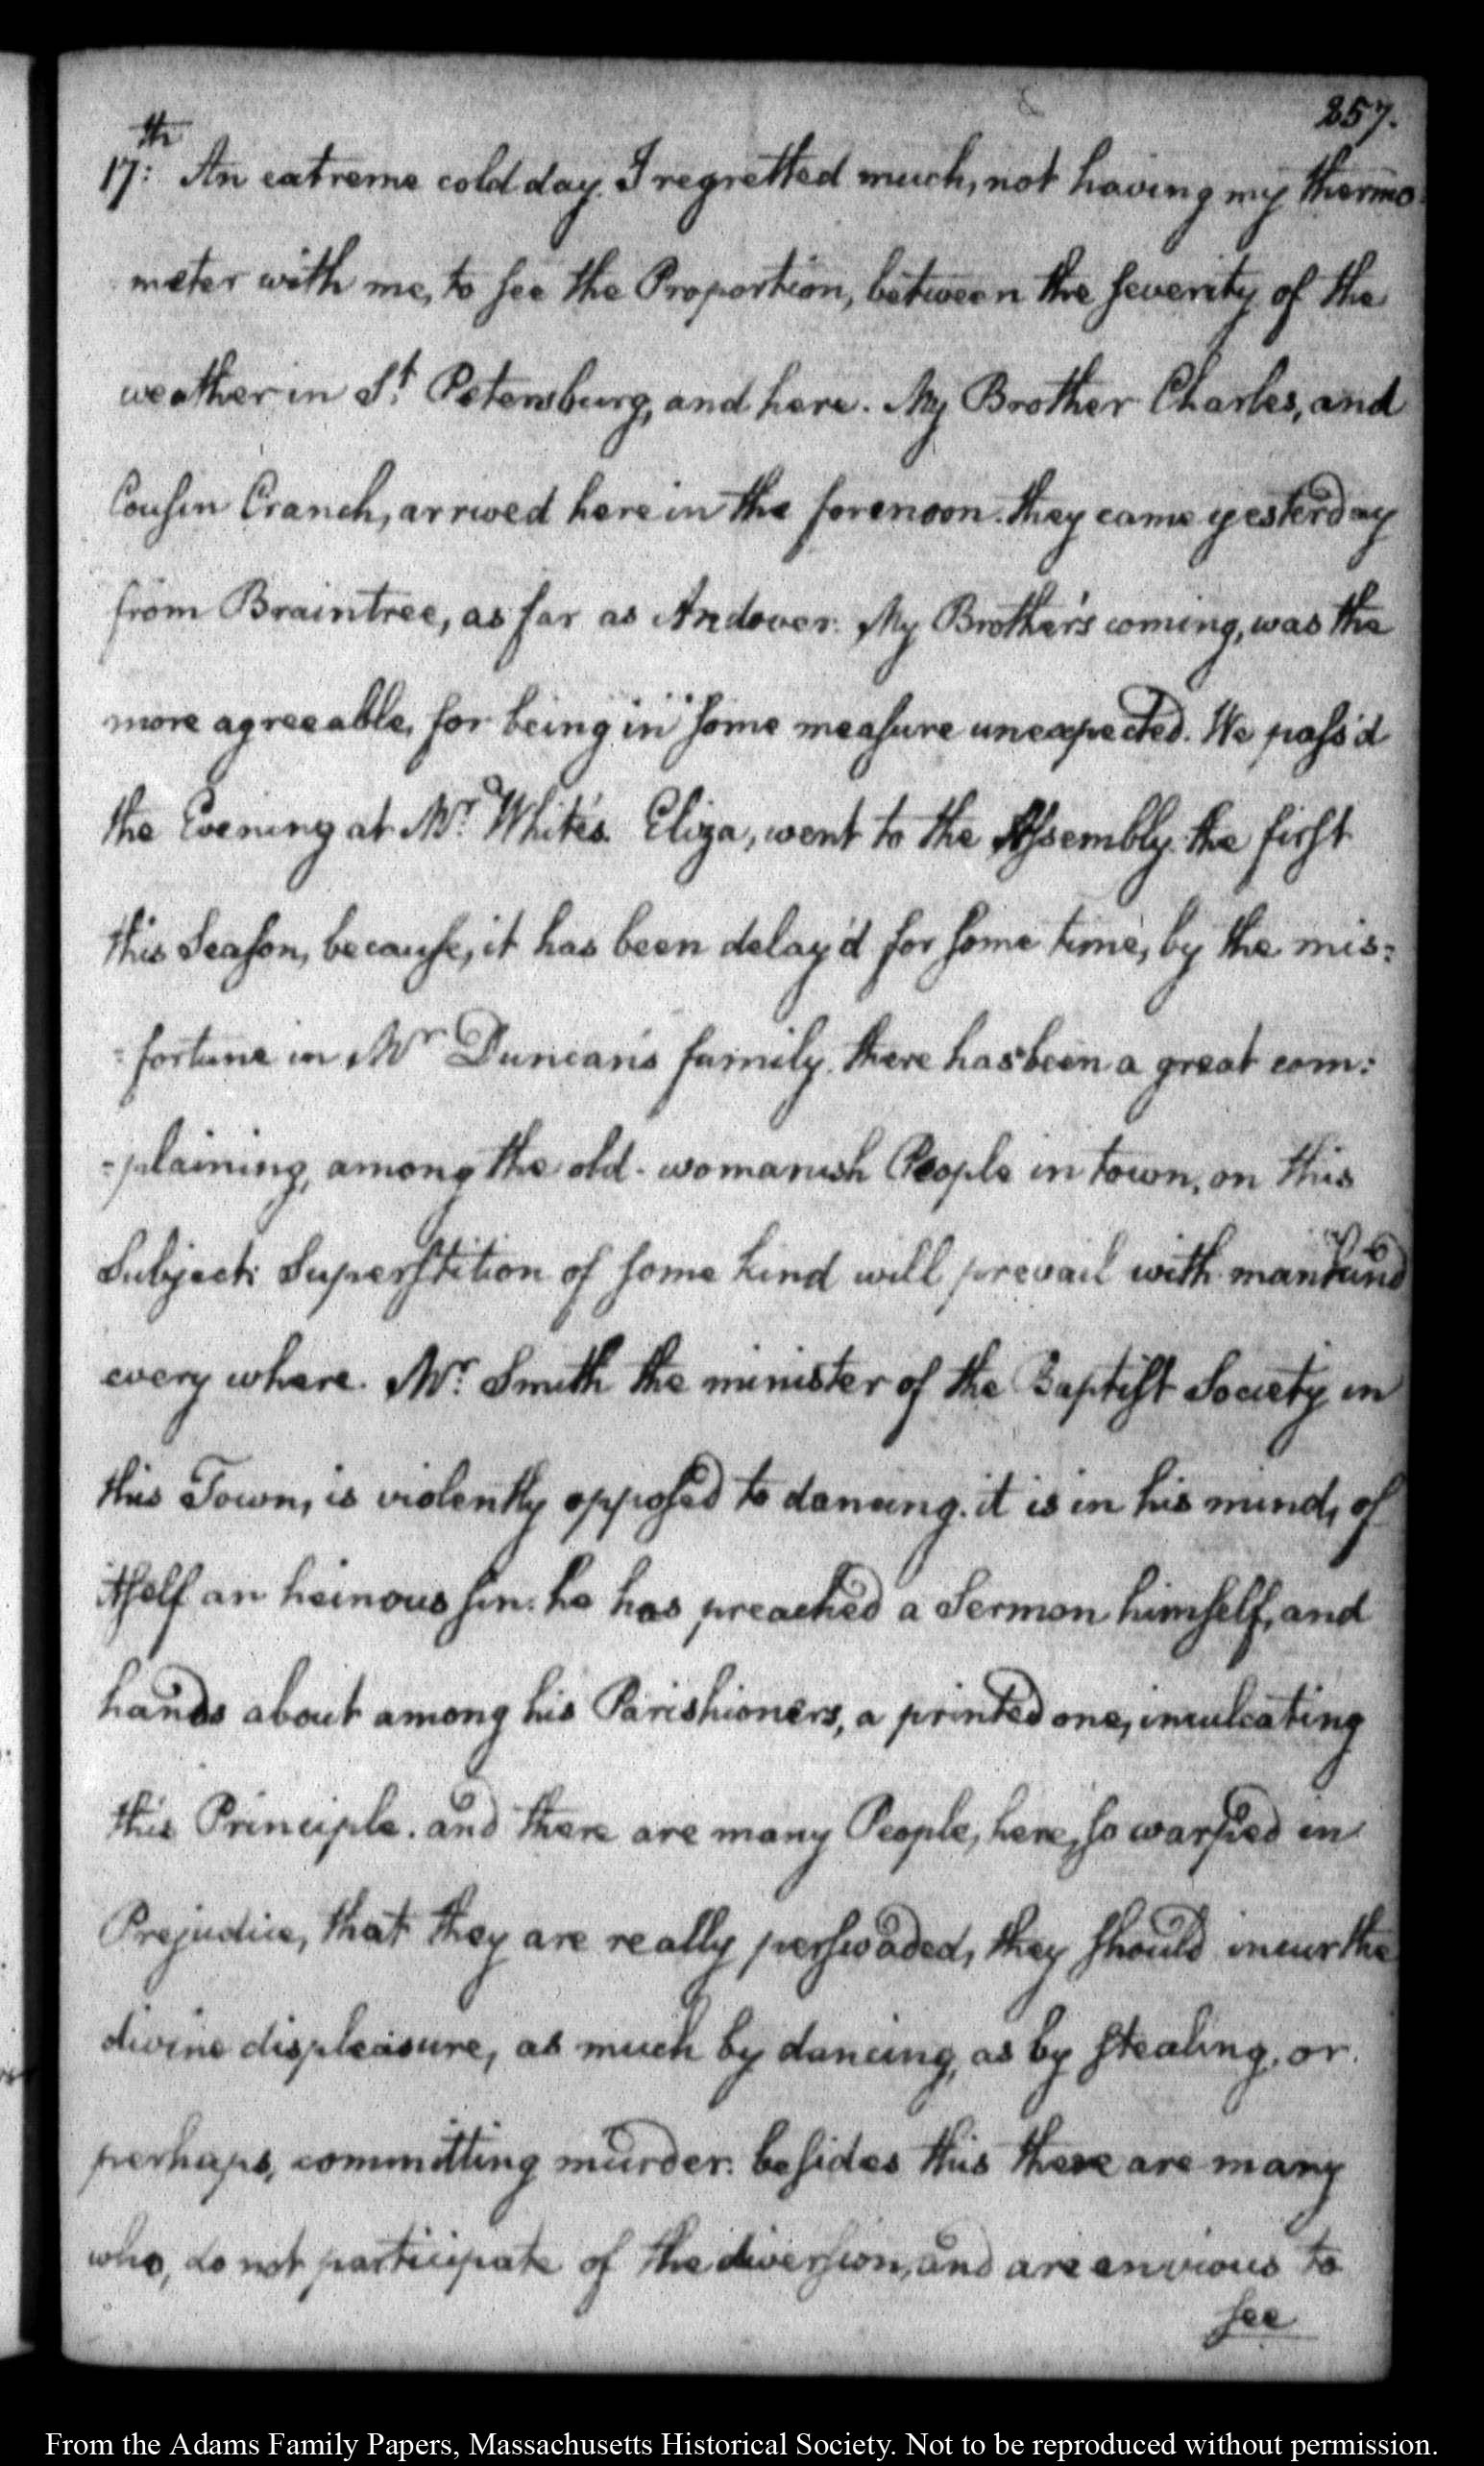 257.
17:th An extreme cold day. I regretted much, not having my thermo-
meter with me, to see the Proportion, between the severity of the
weather in St. Petersburg, and here. My Brother Charles, and
Cousin Cranch, arrived here in the forenoon. they came yesterday
from Braintree, as far as Andover. My Brother's coming, was the
more agreeable, for being in some measure unexpected. We pass'd
the Evening at Mr. White's. Eliza, went to the Assembly. the first
this Season, because, it has been delay'd for some time, by the mis=
=fortune in Mr Duncan's family. there has been a great com=
=plaining, among the old-womanish People in town, on this
Subject: Superstition of some kind will prevail with mankind
every where. Mr. Smith the minister of the Baptist Society in
this Town, is violently opposed to dancing. it is in his mind, of
itself an heinous sin. he has preached a Sermon himself, and
hands about among his Parishioners, a printed one, inculcating
this Principle. and there are many People, here, so warped in
Prejudice, that they are really perswaded, they should incur the
divine displeasure, as much by dancing, as by stealing, or
perhaps, committing murder. besides this there are many
who, do not participate of the diversion, and are envious to
see
From the Adams Family Papers, Massachusetts Historical Society. Not to be reproduced without permission.